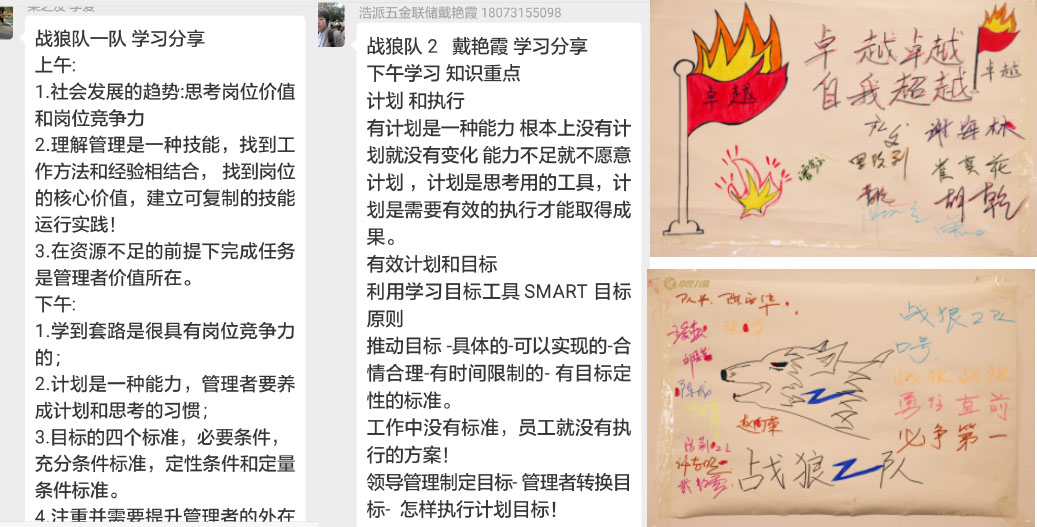 战狼队一队 学习分享
上午:
1.社会发展的趋势:思考岗位价值
和岗位竞争力
2.理解管理是一种技能，找到工
作方法和经验相结合， 找到岗位
的核心价值，建立可复制的技能
运行实践！
3.在资源不足的前提下完成任务
是管理者价值所在。
下午:
1.学到套路是很具有岗位竞争力
的；
2.计划是一种能力，管理者要养
成计划和思考的习惯；
3.目标的四个标准，必要条件，
充分条件标准，定性条件和定量
条件标准。
4.注重并需要提升管理者的外在
浩派五金联储戴艳霞 18073155098
战狼队 2 戴艳霞 学习分享
下午学习 知识重点
计划 和执行
有计划是一种能力 根本上没有计
划就没有变化 能力不足就不愿意
计划 ，计划是思考用的工具，计
划是需要有效的执行才能取得成
果。
有效计划和目标
利用学习目标工具 SMART 目标
原则
推动目标 -具体的-可以实现的-合
情合理-有时间限制的- 有目标定
性的标准。
工作中没有标准，员工就没有执
行的方案！
领导管理制定目标- 管理者转换目
标- 怎样执行计划目标！
卓越
卓越卓越
自我超越
卓越
胡乾
战狼2队
口号
战狼战狼
勇往直前
必争第一
战狼2队